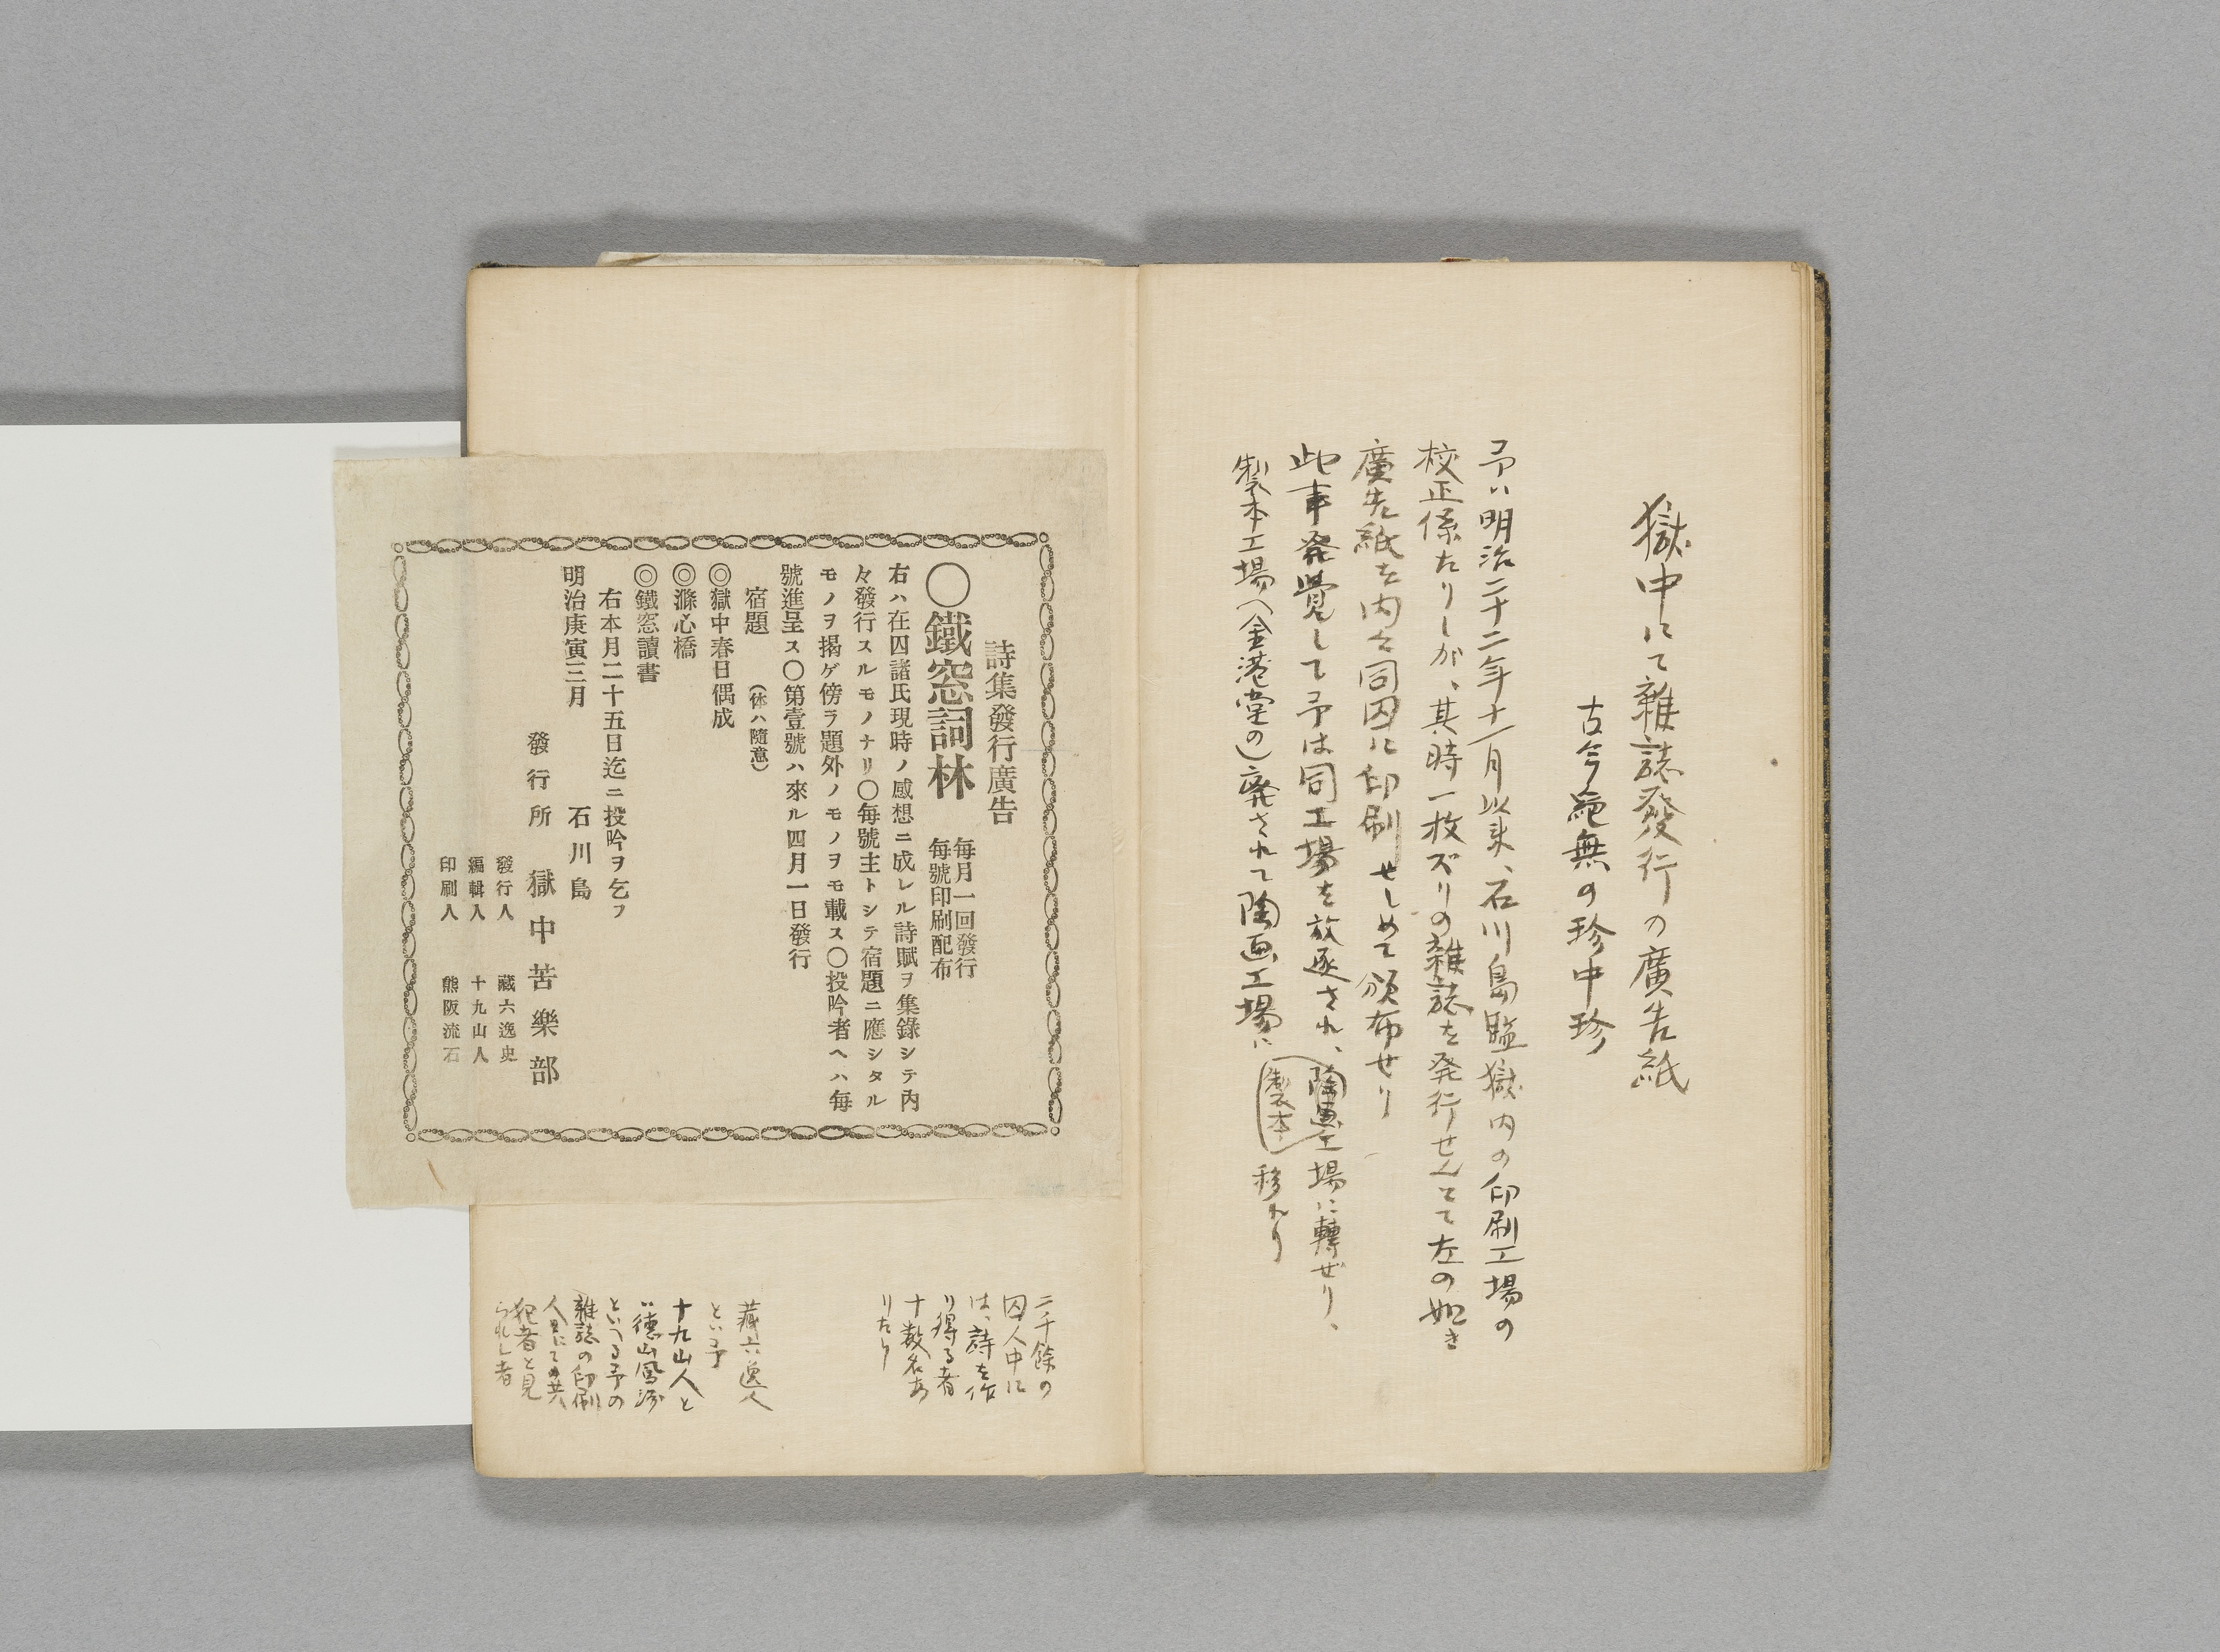 獄中にて雑誌發行の廣告紙
古今絶無の珍中珍
予ハ明治二十二年十一月以来、石川島監獄内の印刷工場の
校正係たりしが、其時一枚ズリの雑誌を発行せんとて左の如き
廣告紙を内々同囚に印刷せしめて頒布せり
此事発覚して予は同工場を放逐され、陶画工場に轉ぜり、
製本工場(金港堂の)廃されて陶画工場に
製本
移れり
詩集發行廣告
〇鐵窓詞林
每月一回發行
每號印刷配布
右ハ在囚諸氏現時ノ感想ニ成レル詩賦ヲ集錄シテ內
々發行スルモノナリ〇每號主トシテ宿題ニ應シタル
モノヲ揭ゲ傍ラ題外ノモノヲモ載ス〇投吟者ヘハ每
號進呈ス〇第壹號ハ來ル四月一日發行
宿題 (体ハ隨意)
◎獄中春日偶成
◎滌心橋
◎鐵窓讀書
右本月二十五日迄ニ投吟ヲ乞フ
明治庚寅三月 石川島
發行所 獄中苦樂部
發行人 藏六逸史
編輯人 十九山人
印刷人 熊阪流石
二千餘の
囚人中に
は、詩を作
り得る者
十数名あ
りたり
蔵六逸人
とハ予
十九山人と
ハ徳山鳳洲
といへる予の
雑誌の印刷
人にて共
犯者と見
られし者